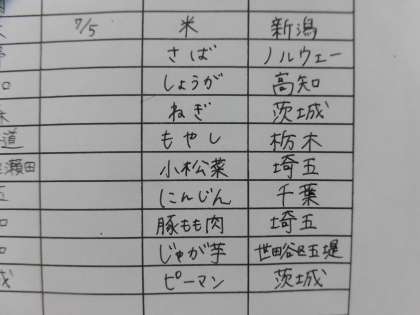 7/5 米 新潟
さば ノルウェー
しょうが 高知
ねぎ 茨城
道 もやし 栃木
瀬田 小松菜 埼玉
玉 にんじん 千葉
豚もも肉 埼玉
じゃが芋 世田谷区玉堤
ピーマン 茨城